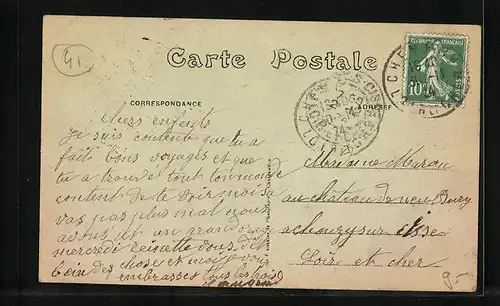 41
Carte Postale
CORRESPONDANCE
ADRESSE
RÉPUBLIQUE FRANÇAISE
10c
POSTES
chers enfants
Je suis contente que tu a
faits bons voyages et que
tu a trouvé tout tout monde
content de te voir moi sa
vas pas plus mal nous
avons un grand
mercredi vous dit
bien des chose et moi je vous
embrasses tous les trois
Madame Maron
au chateau de
a chouzy sur cisse
Loir et cher
9.-